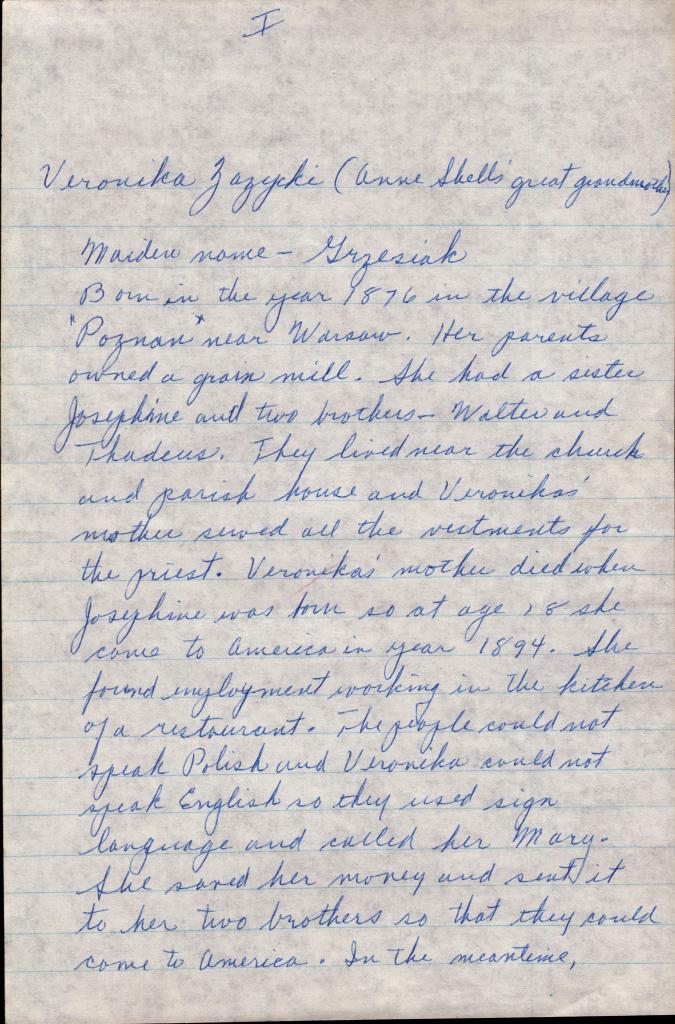 I
Veronika Zazycki (Anne Shell's great grandmother)
Maiden name - Grzesiak
Born in the year 1876 in the village
"Poznan" near Warsaw. Her parents
owned a grain mill. She had a sister
Josephine and two brothers - Walter and
Thadeus. They lived near the church
and parish house and Veronikas'
mother sewed all the vestments for
the priest. Veronikas' mother died when
Josephine was born so at age 18 she
came to America in year 1894. She
found employment working in the kitchen
of a restaurant. The people could not
speak Polish and Veronika could not
speak English so they used sign
language and called her Mary.
She saved her money and sent it
to her two brothers so that they could
come to America. In the meantime,